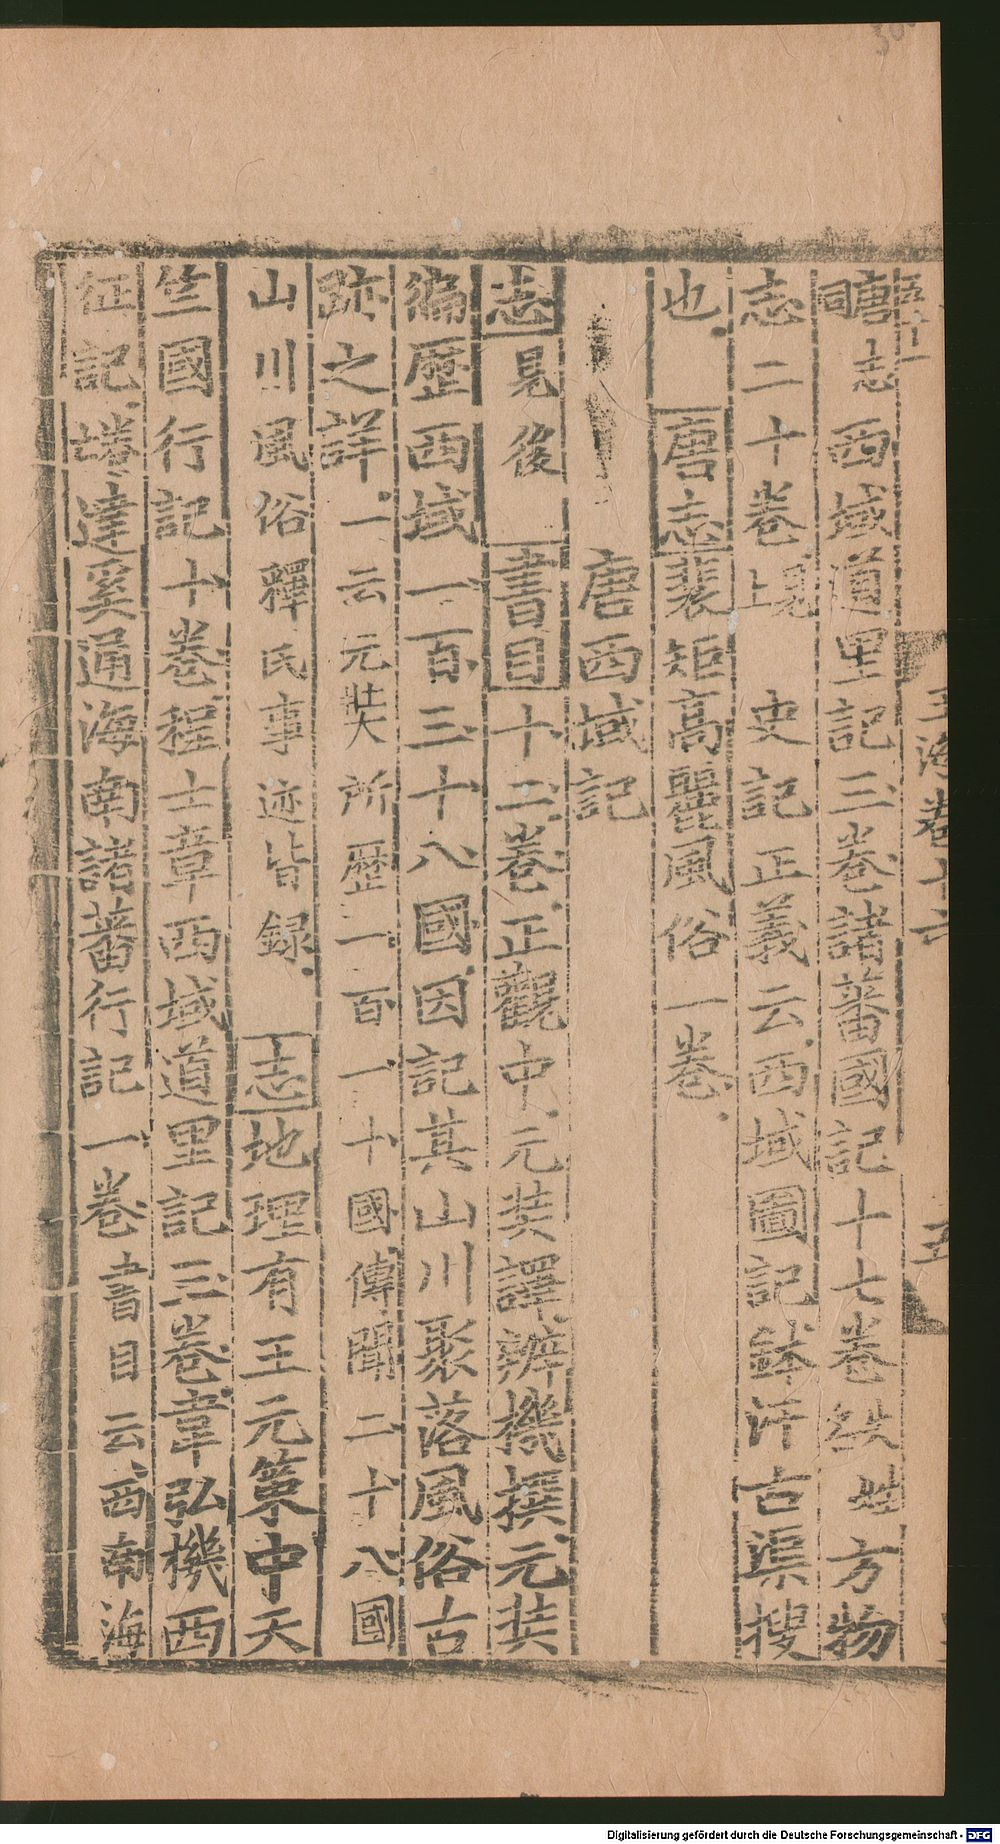 唐志西域道里記三卷諸蕃國記十七卷 方物
志二十卷見上 史記正義云西域圖記鉢汗古渠搜
也 唐志裴矩高麗風俗一卷
唐西域記
志見後 書目十二卷正觀中元奘譯辨機撰元奘
徧歷西域一百三十八國因記其山川聚落風俗古
跡之詳一云元奘所歷一百一十國傳聞二十八國
山川風俗釋氏事迹皆録 志地理有王元策中天
竺國行記十卷程士章西域道里記三卷韋弘機西
征記 達奚通海南諸蕃行記一卷書目云西南海
玉海卷十六
五
Digitalisierung gefördert durch die Deutsche Forschungsgemeinschaft - DFG